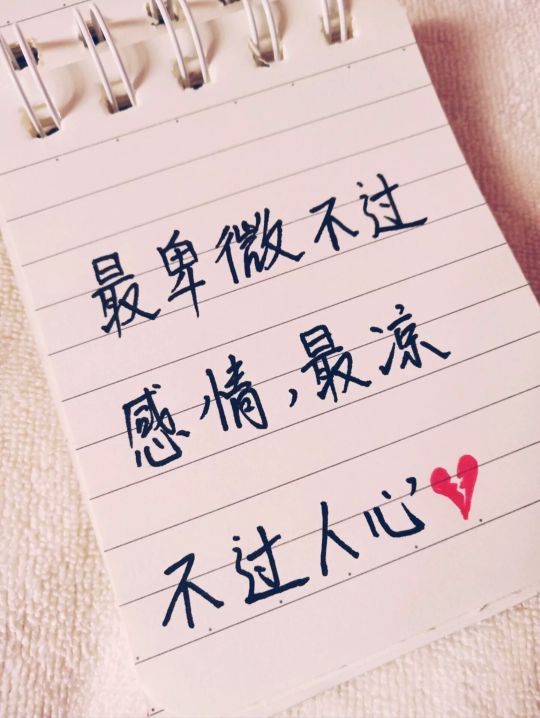 最卑微不过
感情,最凉
不过人心